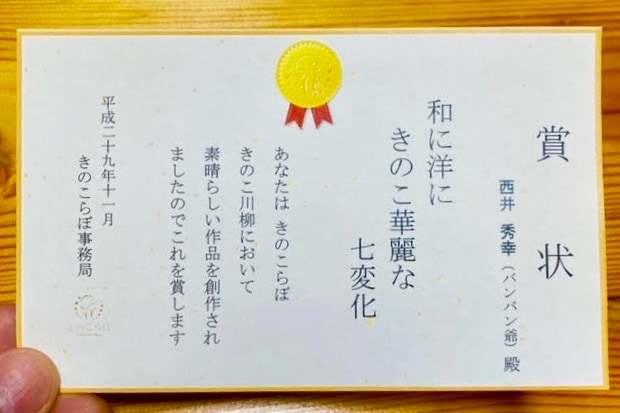 賞状
西井 秀幸(バンバン爺)殿
和に洋に
きのこ華麗な
七変化
あなたは きのこらぼ
きのこ川柳において
素晴らしい作品を創作され
ましたのでこれを賞します
平成二十九年十一月
きのこらぼ事務局